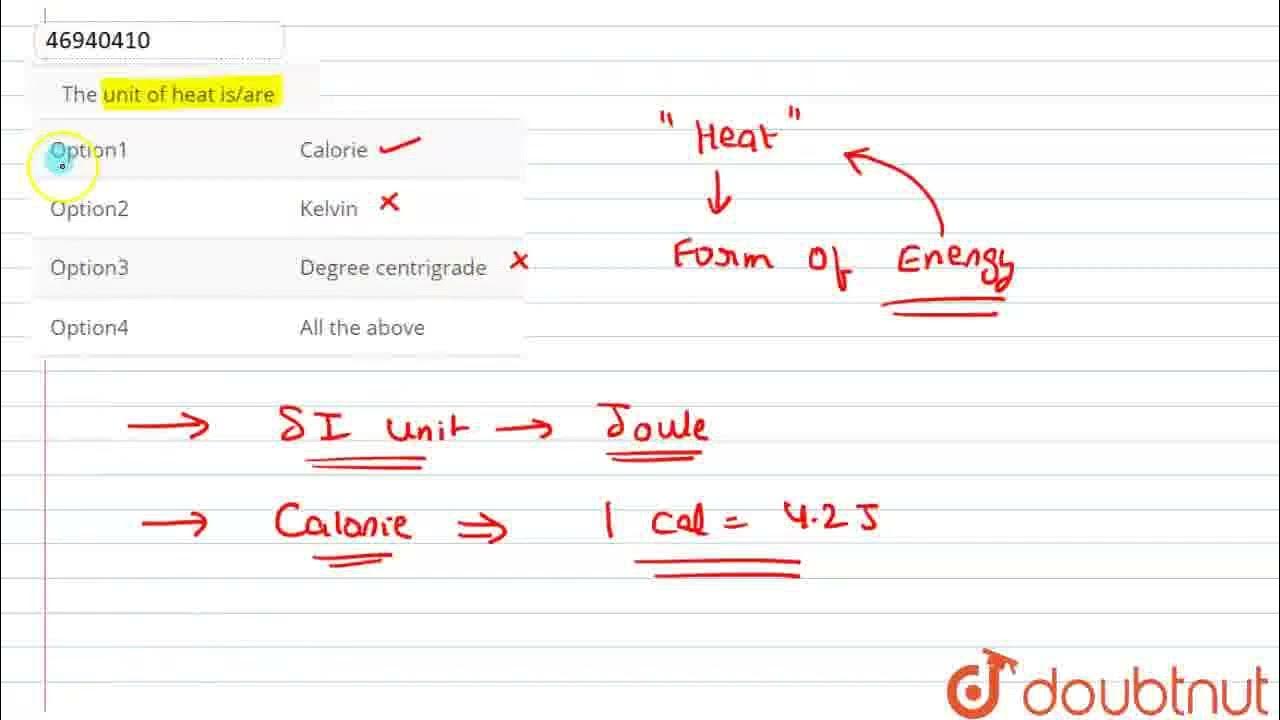 46940410
The unit of heat is/are
Option1 Calorie
Option2 Kelvin
Option3 Degree centrigrade
Option4 All the above
"Heat"
Form of Energy
SI unit → Joule
Calorie ⇒ 1 cal = 4.2 J
doubtnut